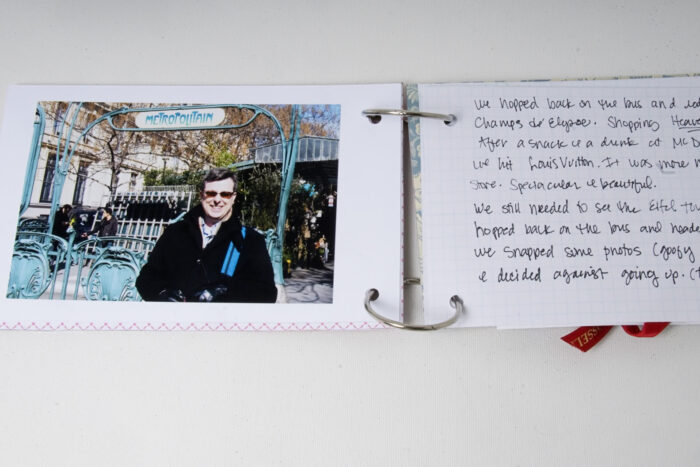 METROPOLITAIN
We hopped back on the bus and
Champs de Elyzee. Shopping Heave
After a snack & a drink at McD
we hit Louis Vuitton. It was more
Store. Spectacular & beautiful.
We still needed to see the Eifel
hopped back on the bus and heade
we snapped some photos (goofy
& decided against going up. (